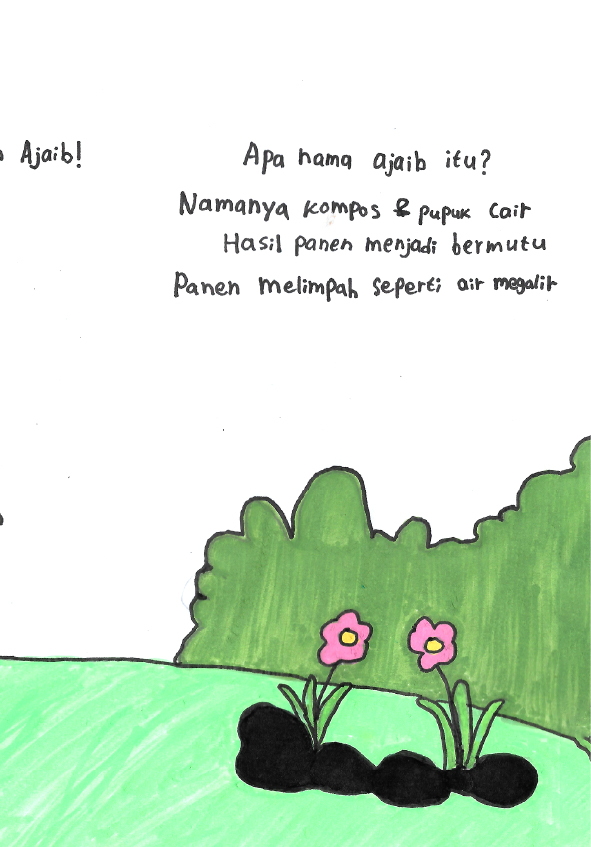 Ajaib!
Apa nama ajaib itu?
Namanya kompos & pupuk cair
Hasil panen menjadi bermutu
Panen melimpah seperti air megalir